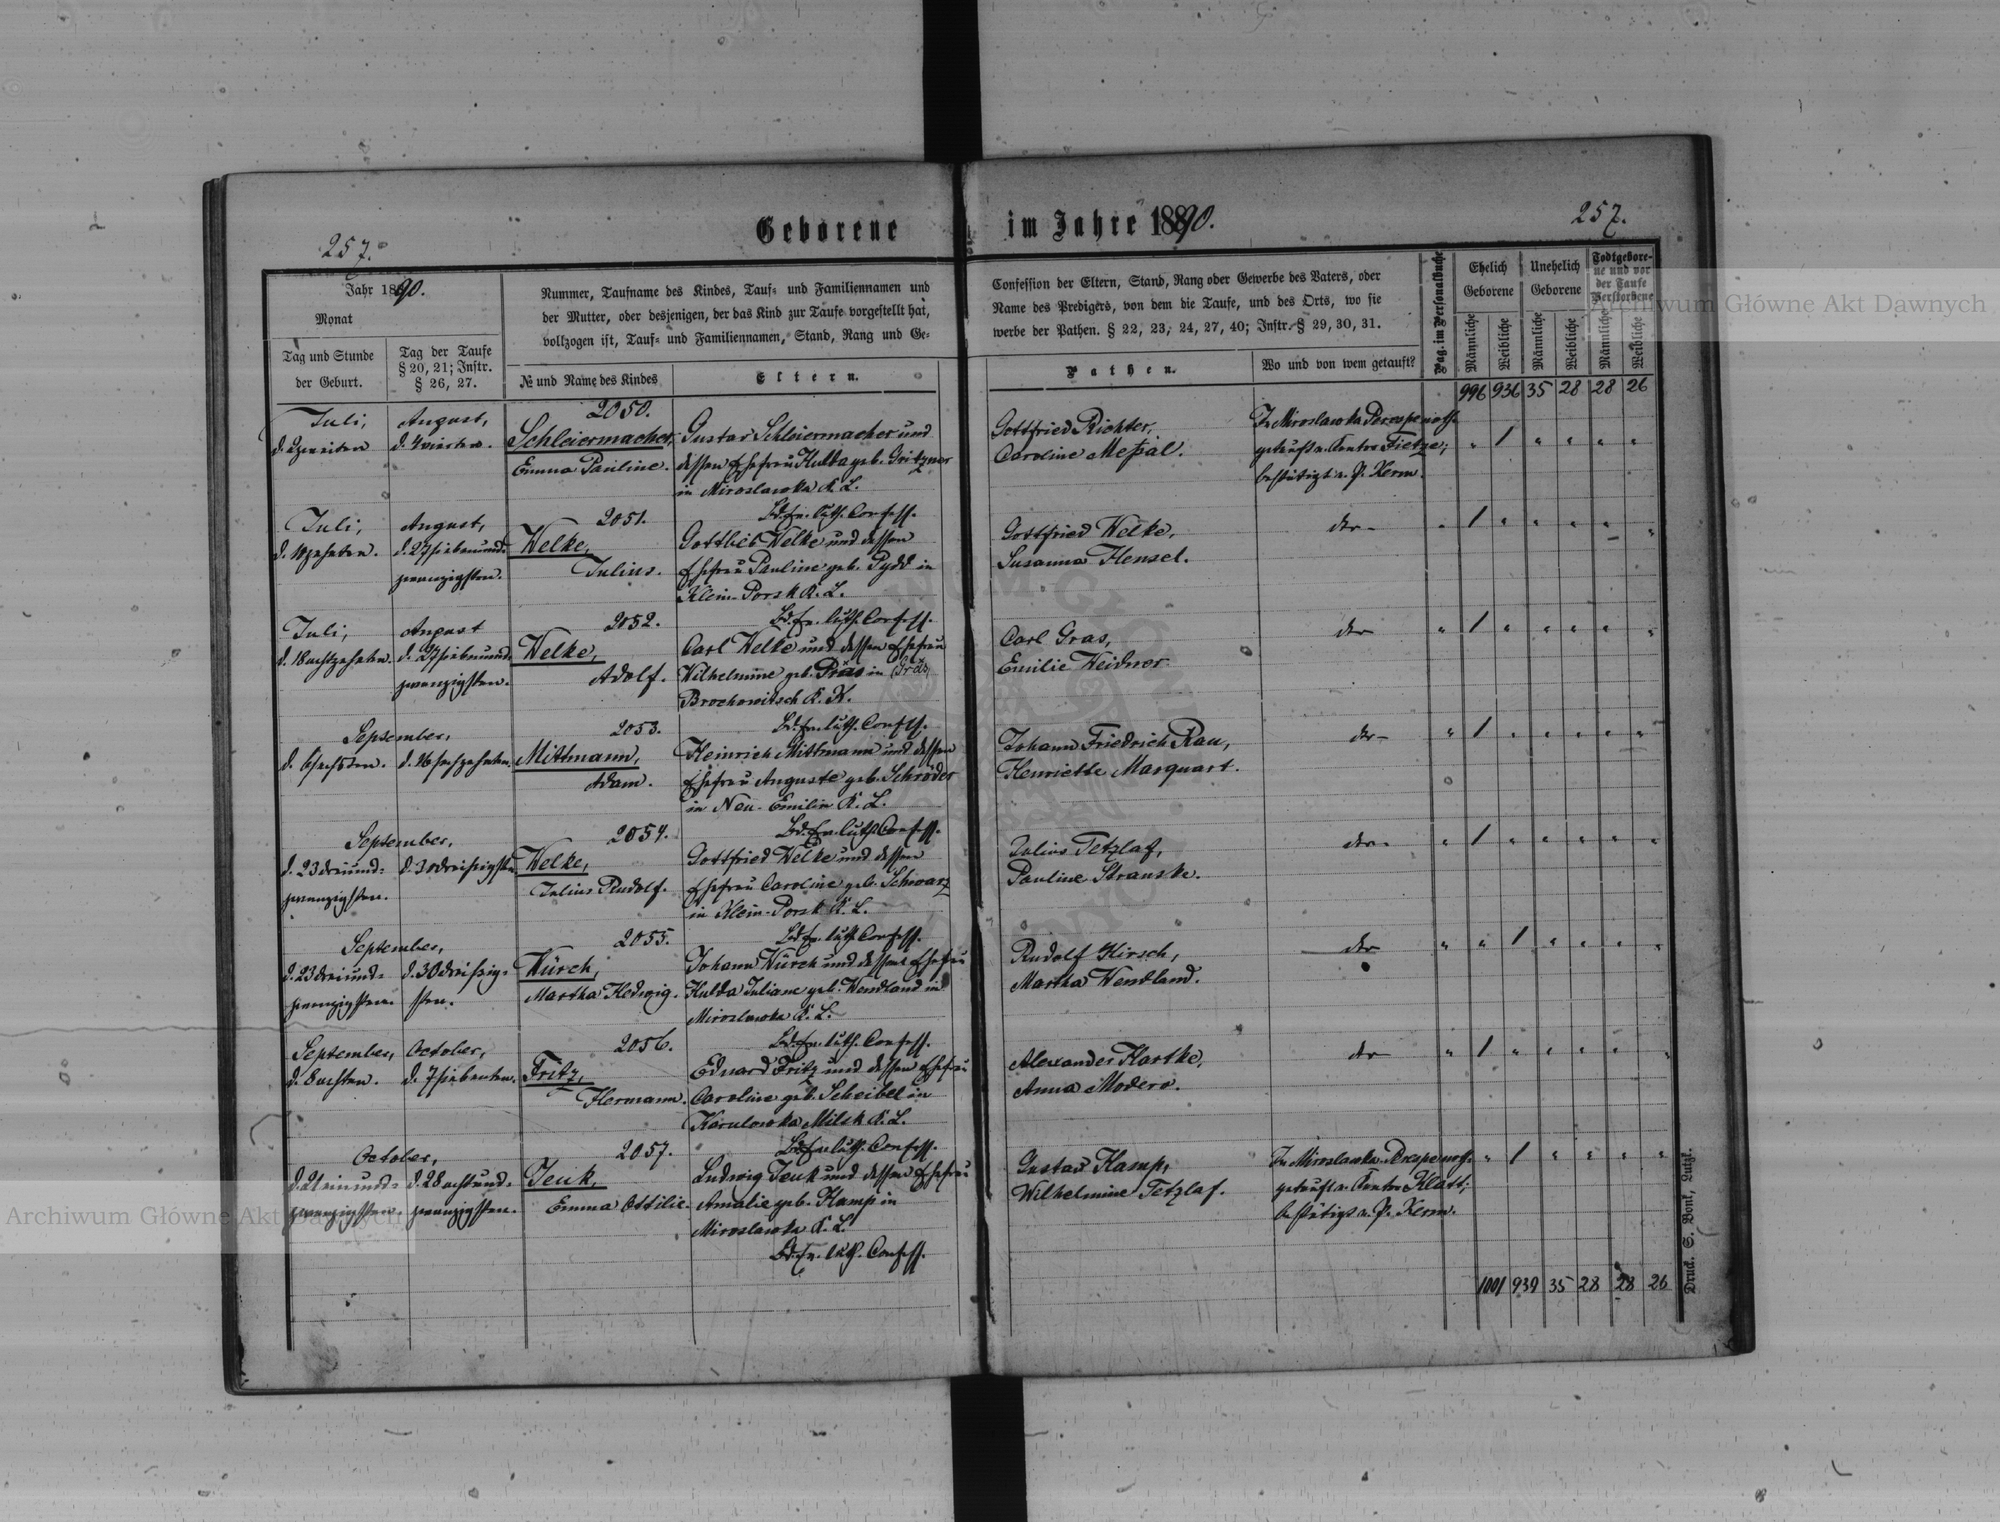 Geborene im Jahre 1890.
257.
257.
Jahr 1890.
Monat
Tag und Stunde
der Geburt.
Tag der Taufe
§ 20, 21; Instr.
§ 26, 27.
Nummer, Taufname des Kindes, Tauf- und Familiennamen und
der Mutter, oder desjenigen, der das Kind zur Taufe vorgestellt hat,
vollzogen ist, Tauf- und Familiennamen, Stand, Rang und Ge-
№ und Name des Kindes
Eltern.
Confession der Eltern, Stand, Rang oder Gewerbe des Vaters, oder
Name des Predigers, von dem die Taufe, und des Orts, wo sie
werbe der Pathen. § 22, 23, 24, 27, 40; Instr. § 29, 30, 31.
Pathen.
Wo und von wem getauft?
Pag. im Personalbuche
Ehelich
Geborene
Unehelich
Geborene
Todtgebore-
ne und vor
der Taufe
Verstorbene
Männliche
Weibliche
Männliche
Weibliche
Männliche
Weibliche
996 936 35 28 28 26
Juli,
d. 2 zweiten
August,
d. 4 vierten.
2050.
Schleiermacher,
Emma Pauline.
Gustav Schleiermacher und
dessen Ehefrau Hulda geb. Gritzner
in Miroslawka K. L.
Bd. Ev. luth. Confess.
Gottfried Richter,
Caroline Meßal.
In Miroslawka
getauft v. Cantor Fietze;
bestätigt v. P. Kerm.
" 1 " " " "
Juli,
d. 10 zehnten.
August,
d. 27 siebenund-
zwanzigsten.
2051.
Welke,
Julius.
Gottlieb Welke und dessen
Ehefrau Pauline geb. Pydd in
Klein-Porsk K. L.
Bd. Ev. luth. Confess.
Gottfried Welke,
Susanna Hensel.
der
" 1 " " " " "
Juli,
d. 18 achtzehnten.
August
d. 27 siebenund-
zwanzigsten.
2052.
Welke,
Adolf.
Carl Welke und dessen Ehefrau
Wilhelmine geb. in (Gräs)
Brochowitsch K. K.
Bd. Ev. luth. Confess.
Carl Gras,
Emilie Weidner
der
" 1 " " " " "
September,
d. 6 sechsten. d. 16 sechzehnten.
2053.
Mittmann,
Adam.
Heinrich Mittmann und dessen
Ehefrau Auguste geb. Schröder
in Neu-Emilin K. L.
Bd. Ev. luth. Confess.
Johann Friedrich Rau,
Henriette Marquart.
der
" 1 " " " " "
September,
d. 23 dreiund-
zwanzigsten.
d. 30 dreißigsten
2054.
Welke,
Julius Rudolf.
Gottfried Welke und dessen
Ehefrau Caroline geb. Schwarz
in Klein-Porsk K. L.
Bd. Ev. luth. Confess.
Julius Tetzlaf,
Pauline Stranske.
der
" 1 " " " " "
September,
d. 23 dreiund-
zwanzigsten.
d. 30 dreißig-
sten.
2055.
Würch,
Martha Hedwig.
Johann Würch und dessen Ehefrau
Hulda Juliane geb. Wendland in
Miroslawka K. L.
Bd. Ev. luth. Confess.
Rudolf Hirsch,
Martha Wendland.
der
" " 1 " " " "
September,
d. 8 achten.
October,
d. 7 siebenten.
2056.
Fritz,
Hermann.
Eduard Fritz und dessen Ehefrau
Caroline geb. Scheibel in
Karulowka Milsk K. L.
Bd. Ev. luth. Confess.
Alexander Hartke,
Anna Modero.
der
" 1 " " " " "
October,
d. 21 einund-
zwanzigsten.
d. 28 achtund-
zwanzigsten.
2057.
Jeuk,
Emma Ottilie.
Ludwig Jeuk und dessen Ehefrau
Amalie geb. Kamp in
Miroslawka K. L.
Bd. Ev. luth. Confess.
Gustav Kamp,
Wilhelmine Tetzlaf.
In Miroslawka
getauft v. Cantor Klatt;
bestätigt v. P. Kerm.
" 1 " " " "
1001 939 35 28 28 26
Druck. S. Bonk, Lutzk.
Archiwum Główne Akt Dawnych
Archiwum Główne Akt Dawnych